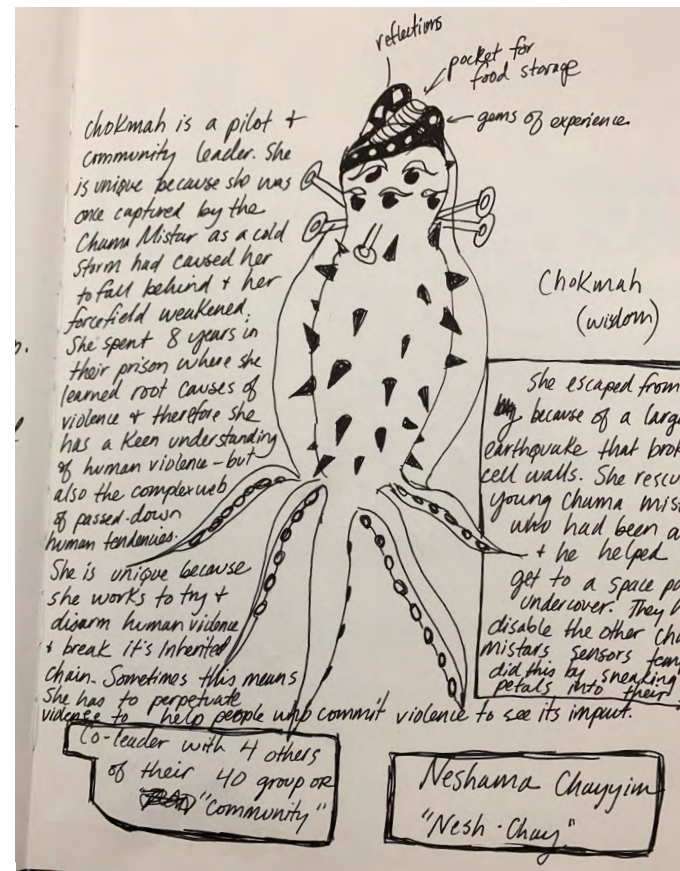 reflections
pocket for
food storage
gems of experience
Chokmah is a pilot +
community leader. She
is unique because she was
once captured by the
Chama Mistar as a cold
storm had caused her
to fall behind + her
forcefield weakened.
She spent 8 years in
their prison where she
learned root causes of
violence + therefore she
has a keen understanding
of human violence - but
also the complex web
of passed-down
human tendencies.
She is unique because
she works to try +
disarm human violence
+ break it's inherited
chain. Sometimes this means
she has to perpetuate
violence to help people who commit violence to see its impact.
Chokmah
(wisdom)
She escaped from
because of a larg
earthquake that brok
cell walls. She rescu
young chama mis
who had been a
+ he helped
get to a space po
undercover. They h
disable the other cha
mistars sensors tem
did this by sneaking
petals into their
Co-leader with 4 others
of their 40 group or
"community"
Neshama Chayyim
"Nesh-Chay"